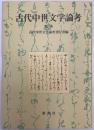 古代中世文学論考
第 集
古代中世文学論考刊行会編
新典社